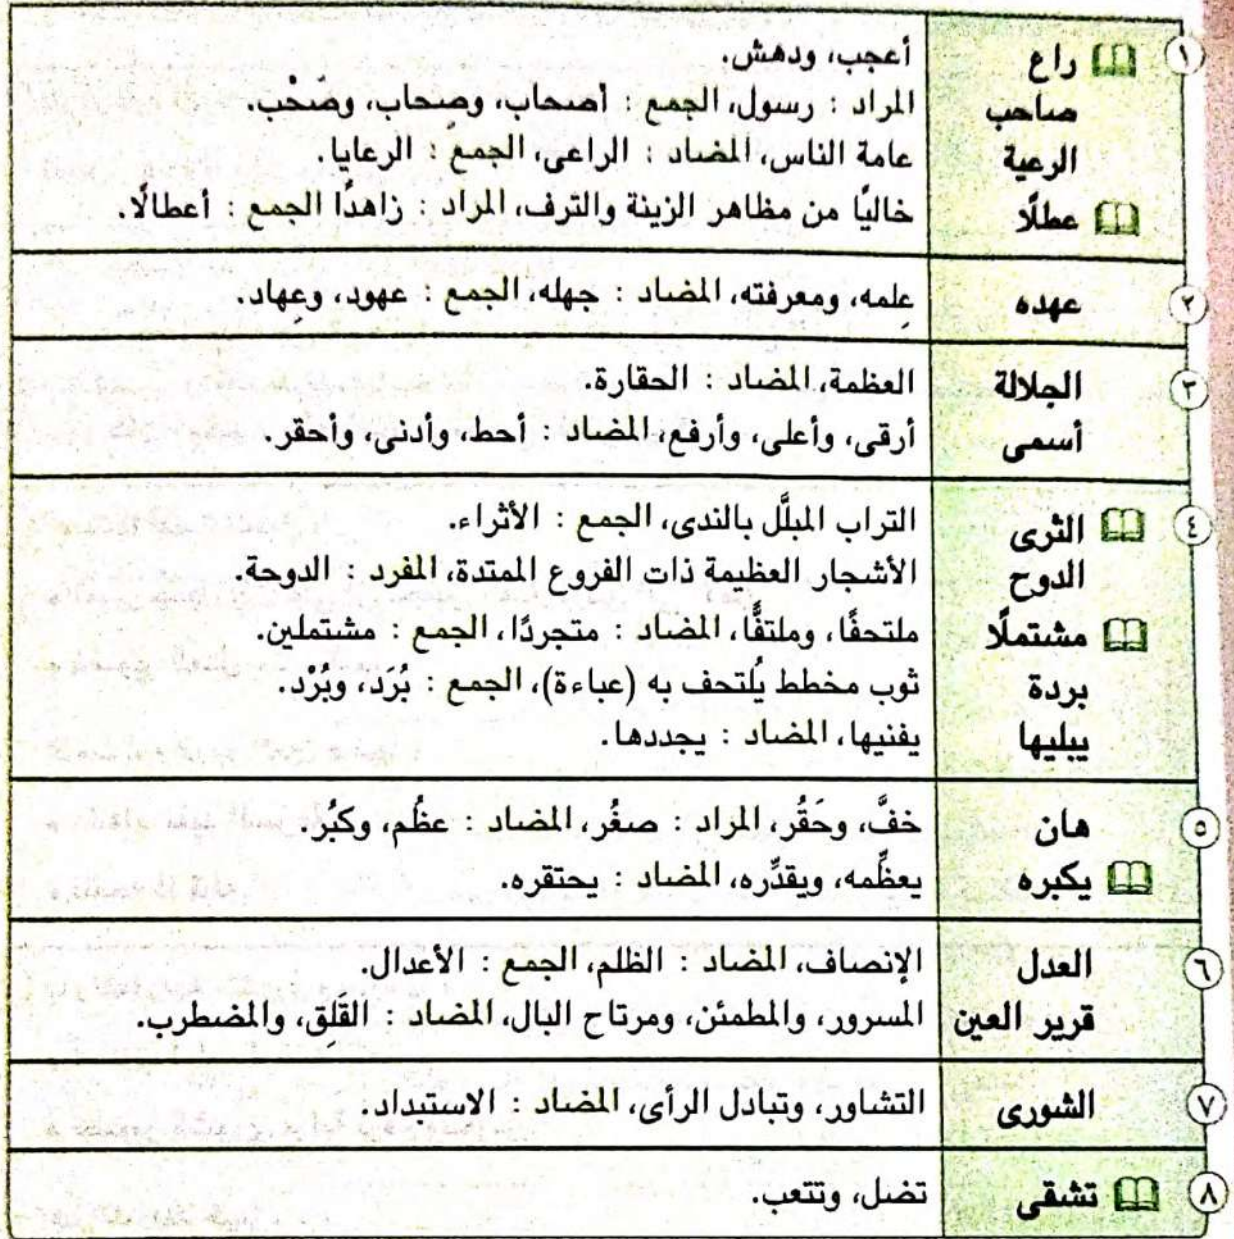 ١ راع أعجب، ودهش.
صاحب المراد : رسول، الجمع : أصحاب، وصِحاب، وصَحْب.
الرعية عامة الناس، المضاد : الراعى، الجمع : الرعايا.
عطلًا خاليًا من مظاهر الزينة والترف، المراد : زاهدًا الجمع : أعطالًا.
٢ عهده عِلمه، ومعرفته، المضاد : جهله، الجمع : عهود، وعِهاد.
٣ الجلالة العظمة، المضاد : الحقارة.
أسمى أرقى، وأعلى، وأرفع، المضاد : أحط، وأدنى، وأحقر.
٤ الثرى التراب المبلَّل بالندى، الجمع : الأثراء.
الدوح الأشجار العظيمة ذات الفروع الممتدة، المفرد : الدوحة.
مشتملًا ملتحفًا، وملتفًّا، المضاد : متجردًا، الجمع : مشتملين.
بردة ثوب مخطط يُلتحف به (عباءة)، الجمع : بُرَد، وبُرْد.
يبليها يفنيها، المضاد : يجددها.
٥ هان خفَّ، وحَقُر، المراد : صغُر، المضاد : عظُم، وكبُر.
يكبره يعظِّمه، ويقدِّره، المضاد : يحتقره.
٦ العدل الإنصاف، المضاد : الظلم، الجمع : الأعدال.
قرير العين المسرور، والمطمئن، ومرتاح البال، المضاد : القَلِق، والمضطرب.
٧ الشورى التشاور، وتبادل الرأى، المضاد : الاستبداد.
٨ تشقى تضل، وتتعب.